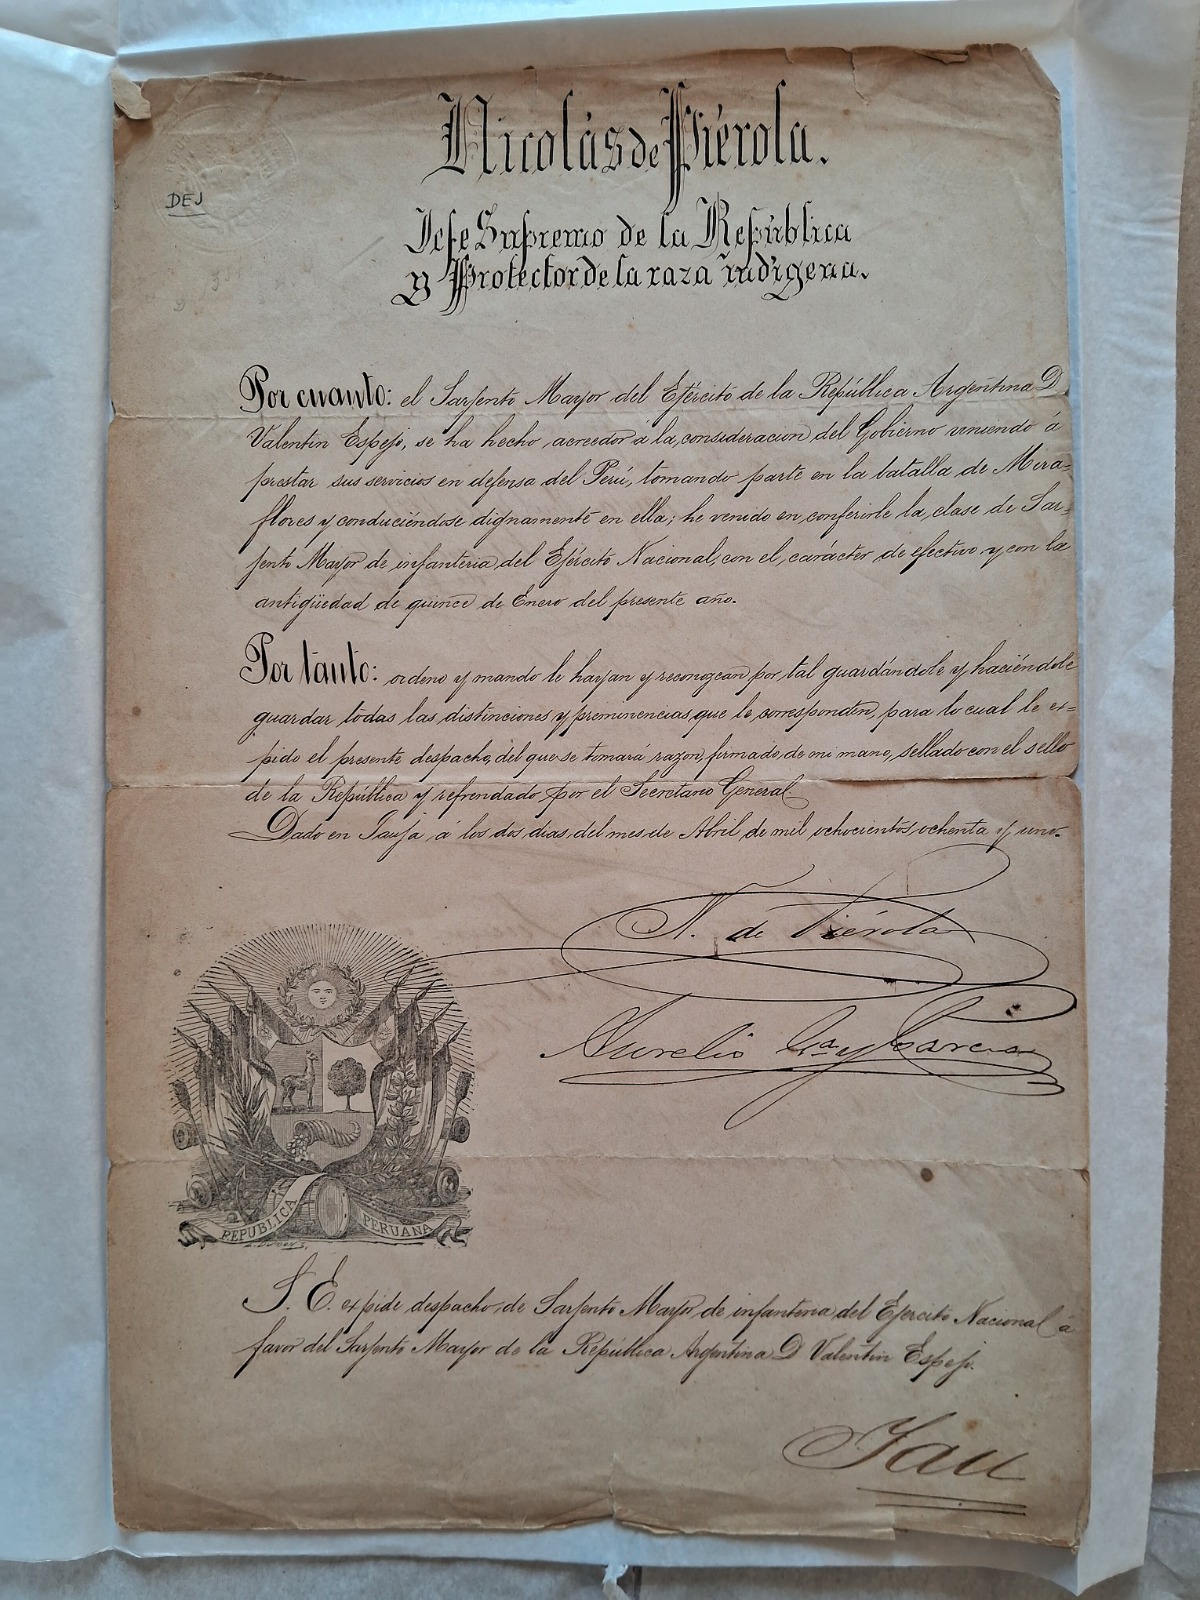 DEJ
Nicolás de Piérola.
Jefe Supremo de la República
y Protector de la raza indígena.
Por cuanto: el Sarjento Mayor del Ejército de la República Argentina D.
Valentin Espejo, se ha hecho, acreedor á la consideracion del Gobierno viniendo á
prestar sus servicios en defensa del Perú, tomando parte en la batalla de Mira=
flores y conduciéndose dignamente en ella; he venido en conferirle la clase de Sar=
jento Mayor de infanteria del Ejército Nacional, con el carácter de efectivo y con la
antigüedad de quince de Enero del presente año.
Por tanto: ordeno y mando le hayan y reconozcan por tal guardándole y haciéndole
guardar todas las distinciones y preminencias que le corresponden, para lo cual le ex=
pido el presente despacho, del que se tomará razon, firmado de mi mano, sellado con el sello
de la República y refrendado por el Secretario General.
Dado en Jauja á los dos dias del mes de Abril de mil ochocientos ochenta y uno.
N. de Piérola
Aurelio Ga. y Garcia
REPUBLICA PERUANA
S. E. expide despacho de Sarjento Mayor de infanteria del Ejercito Nacional á
favor del Sarjento Mayor de la República Argentina D Valentin Espejo.